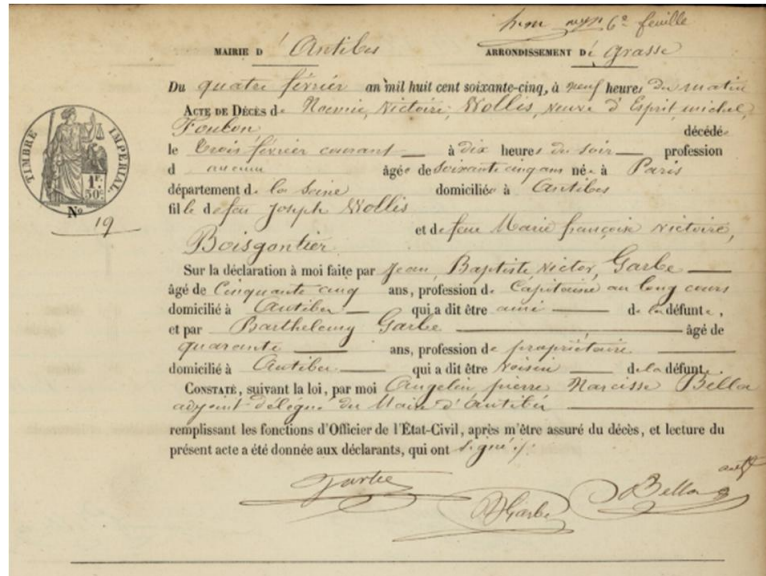 6e feuille
MAIRIE D' Antibes ARRONDISSEMENT De grasse
Du quatre février an mil huit cent soixante-cinq, à neuf heures du matin
ACTE DE DÉCÈS de Noemie, Victoire, Wollis, veuve d'Esprit, michel,
Foulon décédée
le trois février courant à dix heures du soir profession
d aucune âgée de soixante cinq ans née à Paris
département de la Seine domiciliée à Antibes
fille de feu Joseph Wollis
et de feue Marie françoise victoire,
Boisgontier
Sur la déclaration à moi faite par Jean, Baptiste, Victor, Garbe
âgé de Cinquante cinq ans, profession de Capitaine au long cours
domicilié à Antibes qui a dit être ami de la défunte,
et par Barthelemy Garbe âgé de
quarante ans, profession de propriétaire
domicilié à Antibes qui a dit être voisin de la défunte.
CONSTATÉ, suivant la loi, par moi Angelin pierre Narcisse Bellon
adjoint délégué du Maire d'Antibes
remplissant les fonctions d'Officier de l'État-Civil, après m'être assuré du décès, et lecture du
présent acte a été donnée aux déclarants, qui ont signé
Garbe
BGarbe
Bellon
TIMBRE IMPÉRIAL
1 F. 50 C.
No
19